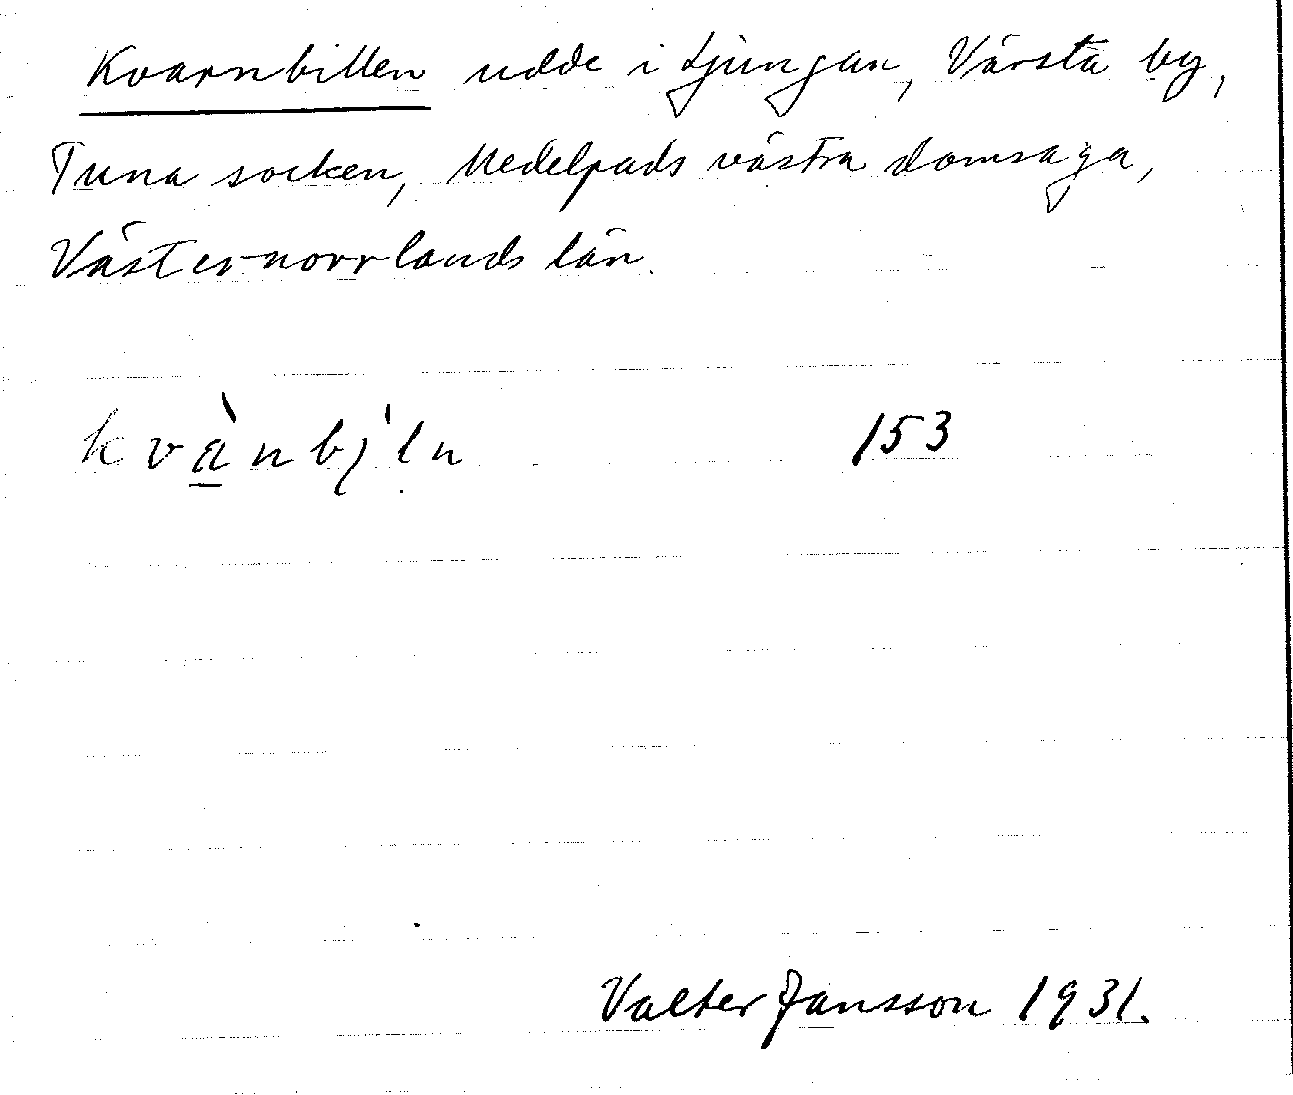 Kvarnbillen udde i Ljungan, Värsta by,
Tuna socken, Medelpads västra domsaga,
Västernorrlands län.
kvànbįl̍n 153
Valter Jansson 1931.